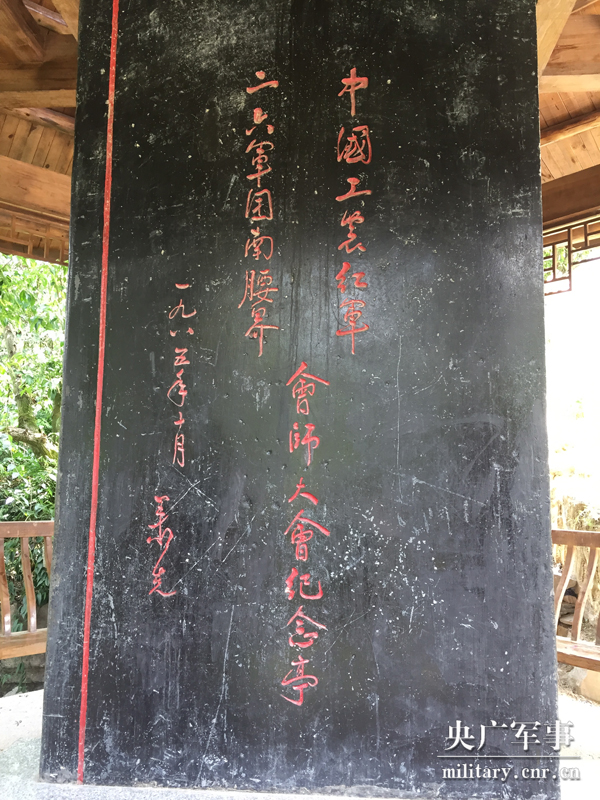 中國工農红軍
二六軍团南腰界
會師大會纪念亭
一九八五年十月 萧克
央广军事
military.cnr.cn